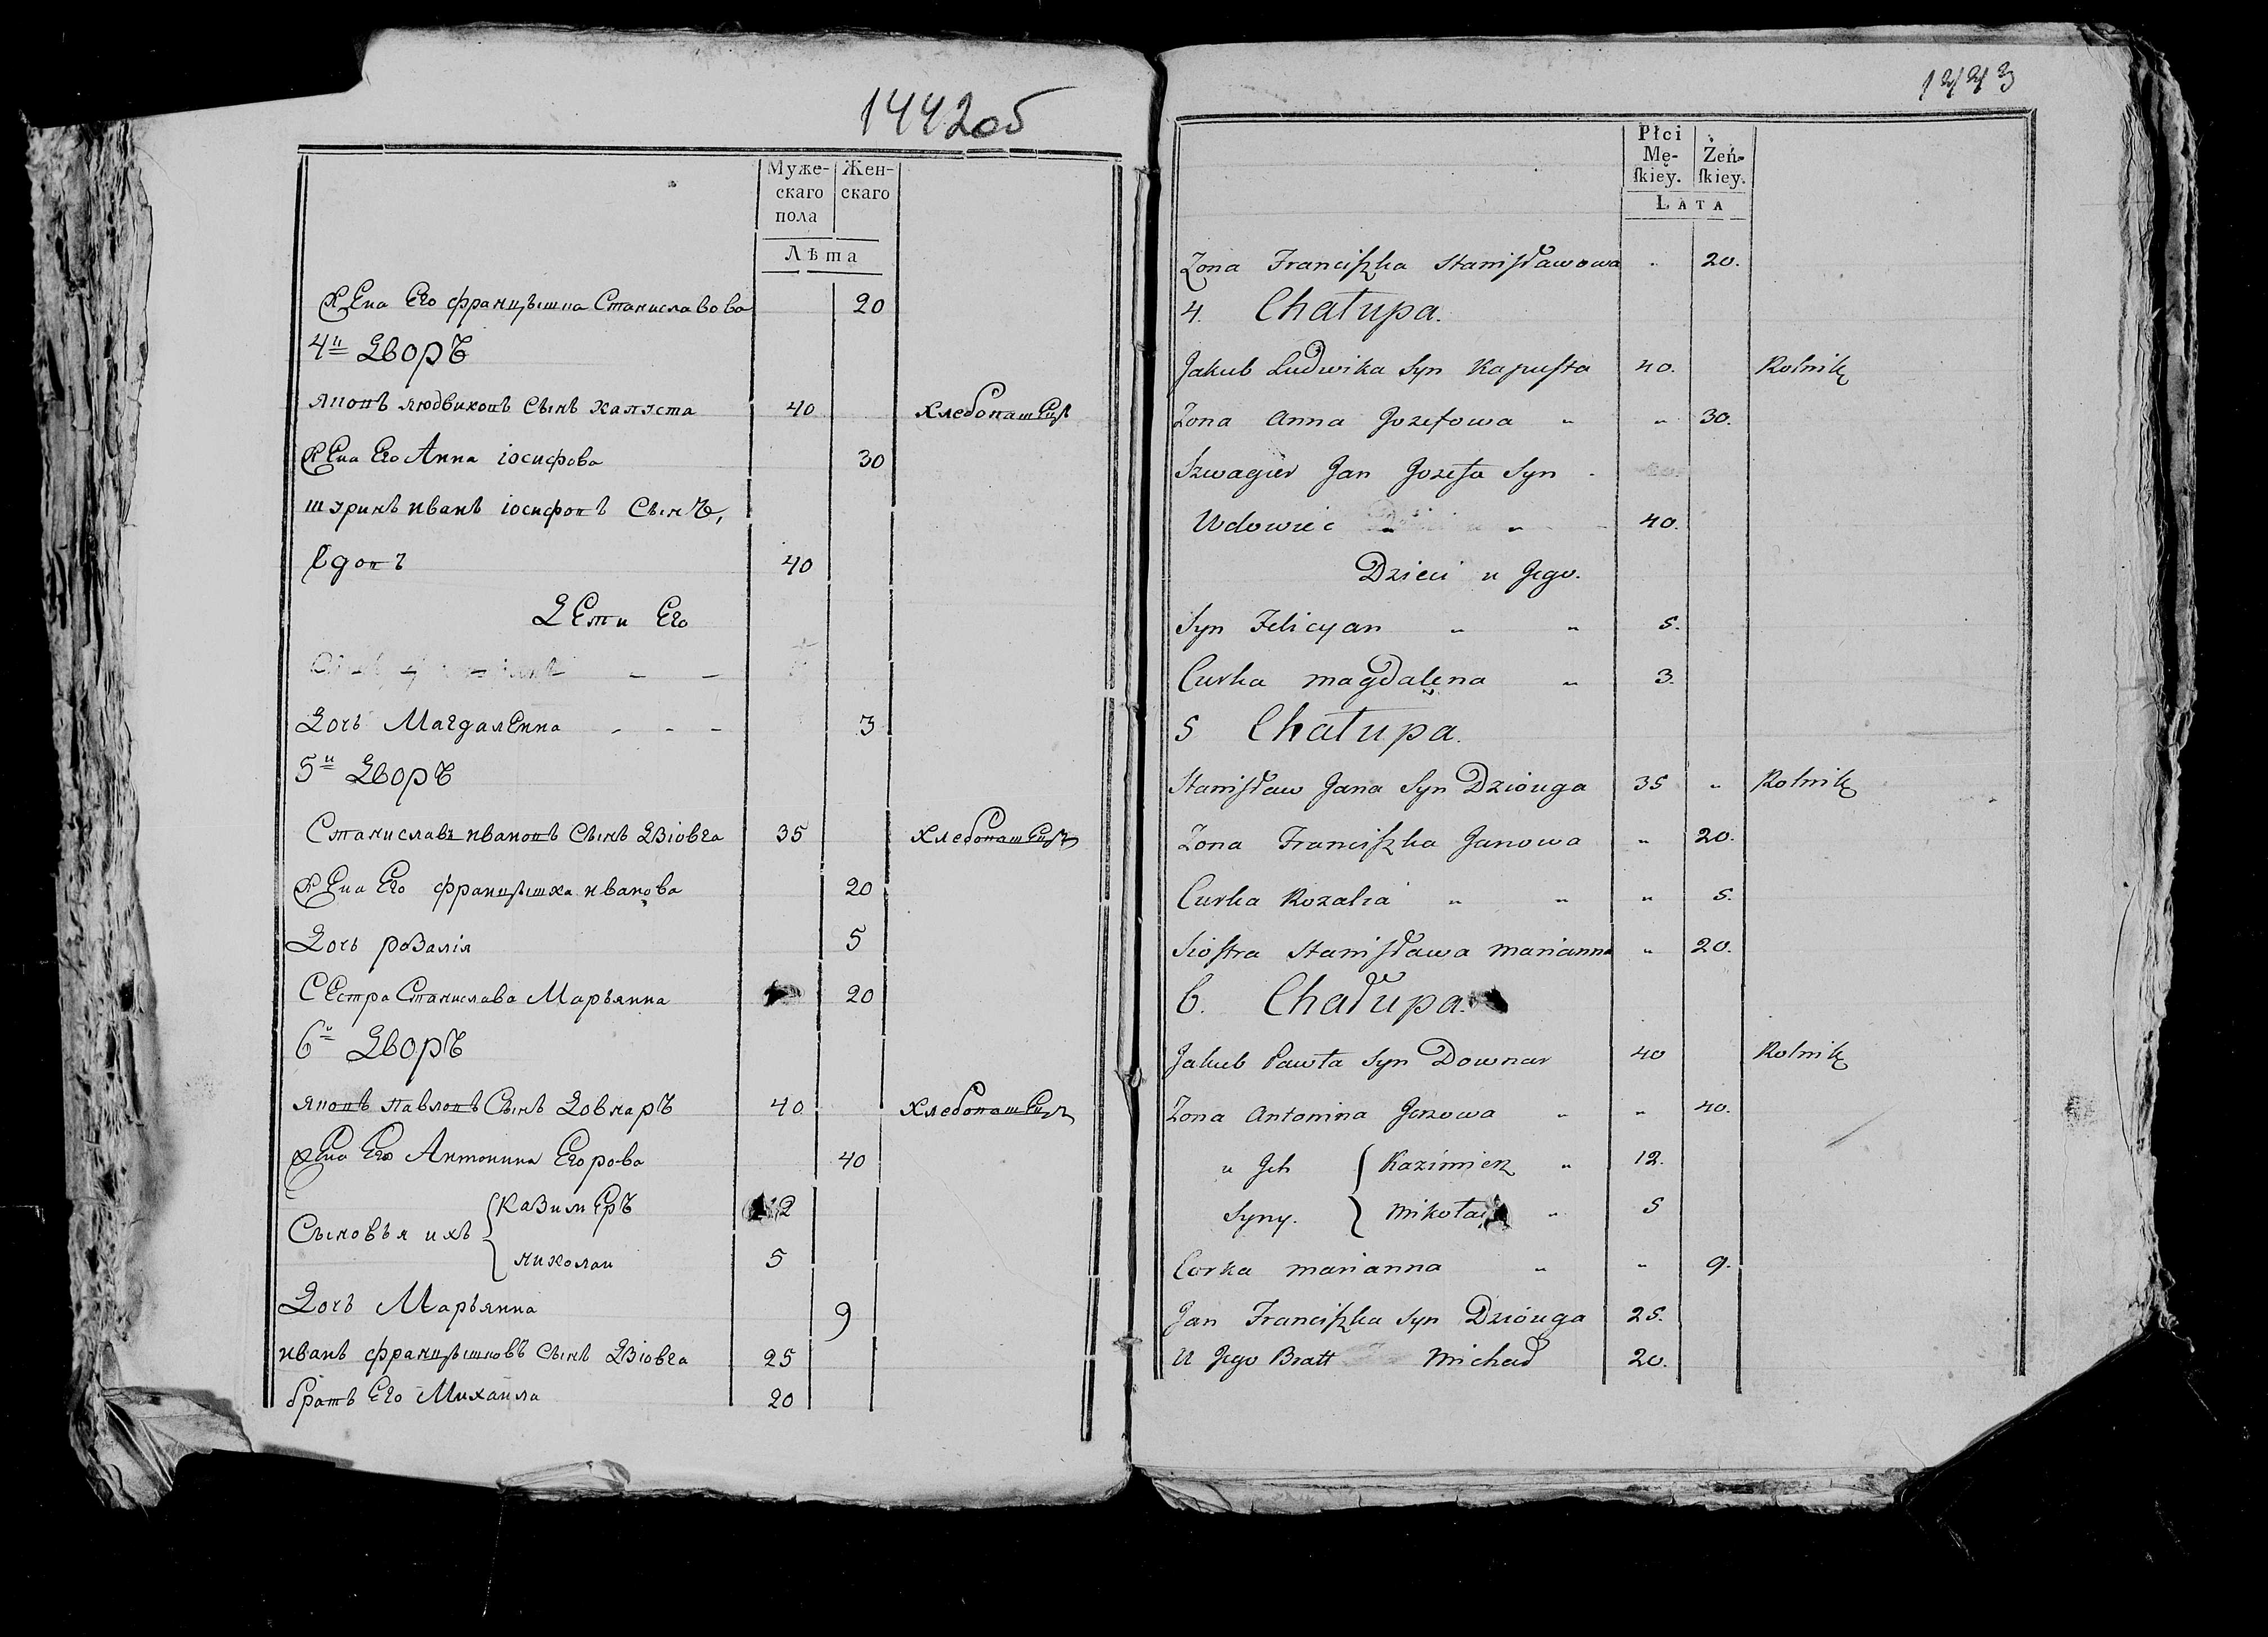 1442об
Муже- Жен-
скаго скаго
пола
Лѣта
Жена Его францышка Станиславова 20
4й Дворъ
якопъ людвиковъ Сынъ капуста 40 хлебопашецъ
Жена Его Анна іосифова 30
шуринъ иванъ іосифовъ Сынъ,
вдовъ 40
Дети Его
Дочь Магдаленна - - - 3
5й Дворъ
Станиславъ ивановъ Сынъ Дзіовга 35 хлебопашецъ
Жена Его францышка иванова 20
Дочь розалія 5
Сестра Станислава Марьянна 20
6й Дворъ
яковъ павловъ Сынъ Довнаръ 40 хлебопашецъ
жена Его Антонина Егорова 40
Сыновья ихъ { казимеръ 12
николаи 5
Дочь Марьянна 9
иванъ францышковъ сынъ Дзіовга 25
братъ Его Михаила 20
1443
Płci
Mę- Żeń-
ſkiey. ſkiey.
LATA
Zona Franciſzka Staniſławowa " 20.
4. Chałupa.
Jakub Ludwika Syn Kapuſta 40. Rolnik
Zona Anna Jozefowa " " 30.
Szwagier Jan Jozefa Syn -
Wdowiec " " 40.
Dzieci u Jego.
Syn Felicyan " " 5.
Curka magdalena " 3.
5 Chałupa.
Staniſław Jana Syn Dziouga 35 " Rolnik
Zona Franciſzka Janowa " 20.
Curka Rozalia " " " 5.
Sioſtra Staniſława marianna " 20.
6. Chałupa.
Jakub Pawła Syn Downar 40 Rolnik
Zona Antonina Jerzowa " " 40.
u Jch { Kazimierz " 12.
Syny. mikołaj " 5
Corka marianna " " 9.
Jan Franciſzka Syn Dziouga 25.
U Jego Bratt michał 20.